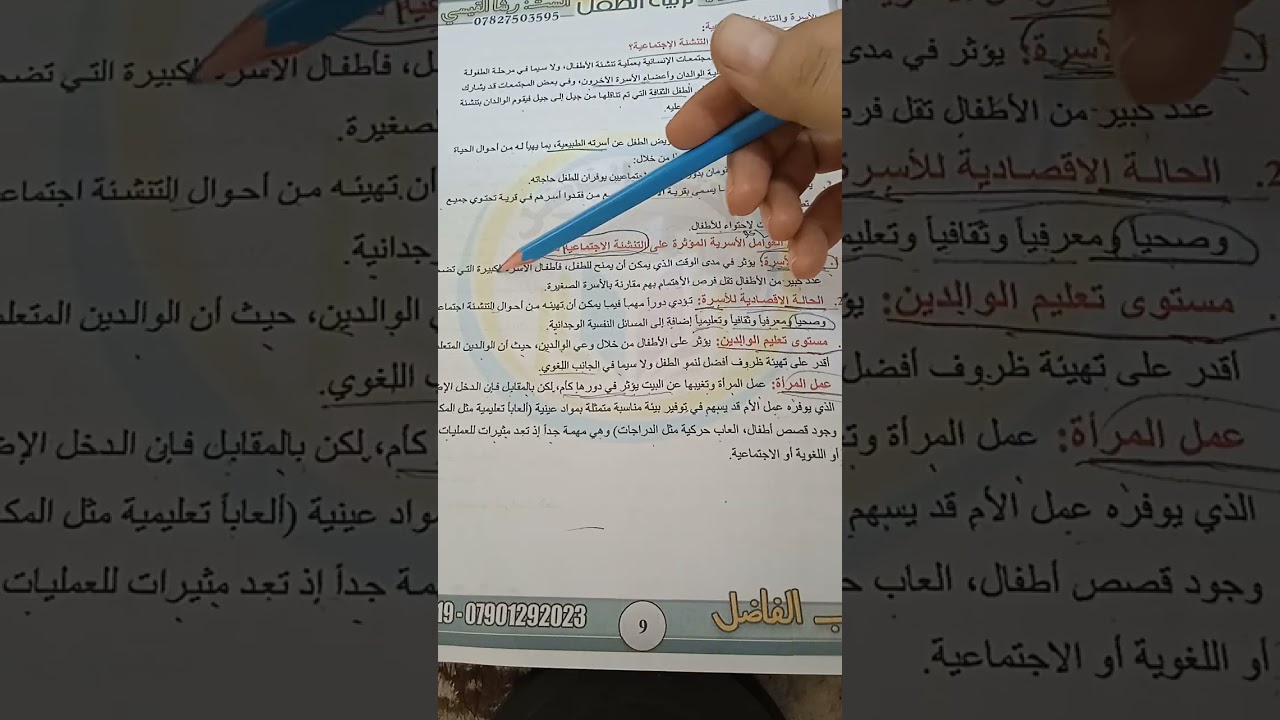 تربية الطفل الست: رفا القيسي
07827503595
الأسرة والتنشئة
التنشئة الإجتماعية؟
المجتمعات الإنسانية بعملية تنشئة الأطفال، ولا سيما في مرحلة الطفولة
الوالدان وأعضاء الأسرة الآخرون، وفي بعض المجتمعات قد يشارك
الطفل الثقافة التي تم تناقلها من جيل إلى جيل فيقوم الوالدان بتنشئة
عليه.
الطفل عن أسرته الطبيعية، بما يهيأ له من أحوال الحياة
من خلال:
اجتماعيين يوفران للطفل حاجاته.
يسمى بقرية من فقدوا أسرهم في قرية تحتوي جميع
لاحتواء للأطفال.
العوامل الأسرية المؤثرة على التنشئة الإجتماعية
الأسرة: يؤثر في مدى الوقت الذي يمكن أن يمنح للطفل، فأطفال الأسرة الكبيرة التي تضم
عدد كبير من الأطفال تقل فرص الأهتمام بهم مقارنة بالأسرة الصغيرة.
2. الحالة الاقصادية للأسرة: تؤدي دوراً مهماً فيما يمكن أن تهينه من أحوال التنشئة اجتماعياً
وصحياً ومعرفياً وثقافياً وتعليمياً إضافة إلى المسائل النفسية الوجدانية.
مستوى تعليم الوالدين: يؤثر على الأطفال من خلال وعي الوالدين، حيث أن الوالدين المتعلم
أقدر على تهيئة ظروف أفضل لنمو الطفل ولا سيما في الجانب اللغوي.
عمل المرأة: عمل المرأة وتغيبها عن البيت يؤثر في دورها كأم، لكن بالمقابل فإن الدخل الإض
الذي يوفره عمل الأم قد يسهم في توفير بيئة مناسبة متمثلة بمواد عينية (ألعاباً تعليمية مثل المك
وجود قصص أطفال، العاب حركية مثل الدراجات) وهي مهمة جداً إذ تعد مثيرات للعمليات
أو اللغوية أو الاجتماعية.
19 - 07901292023
9
الفاضل